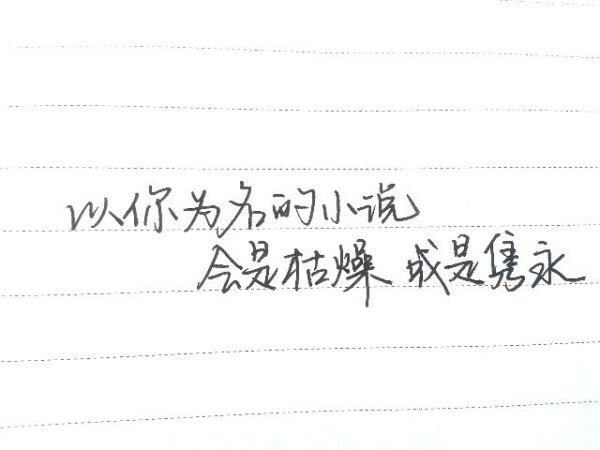 以你为名的小说
会是枯燥 或是隽永